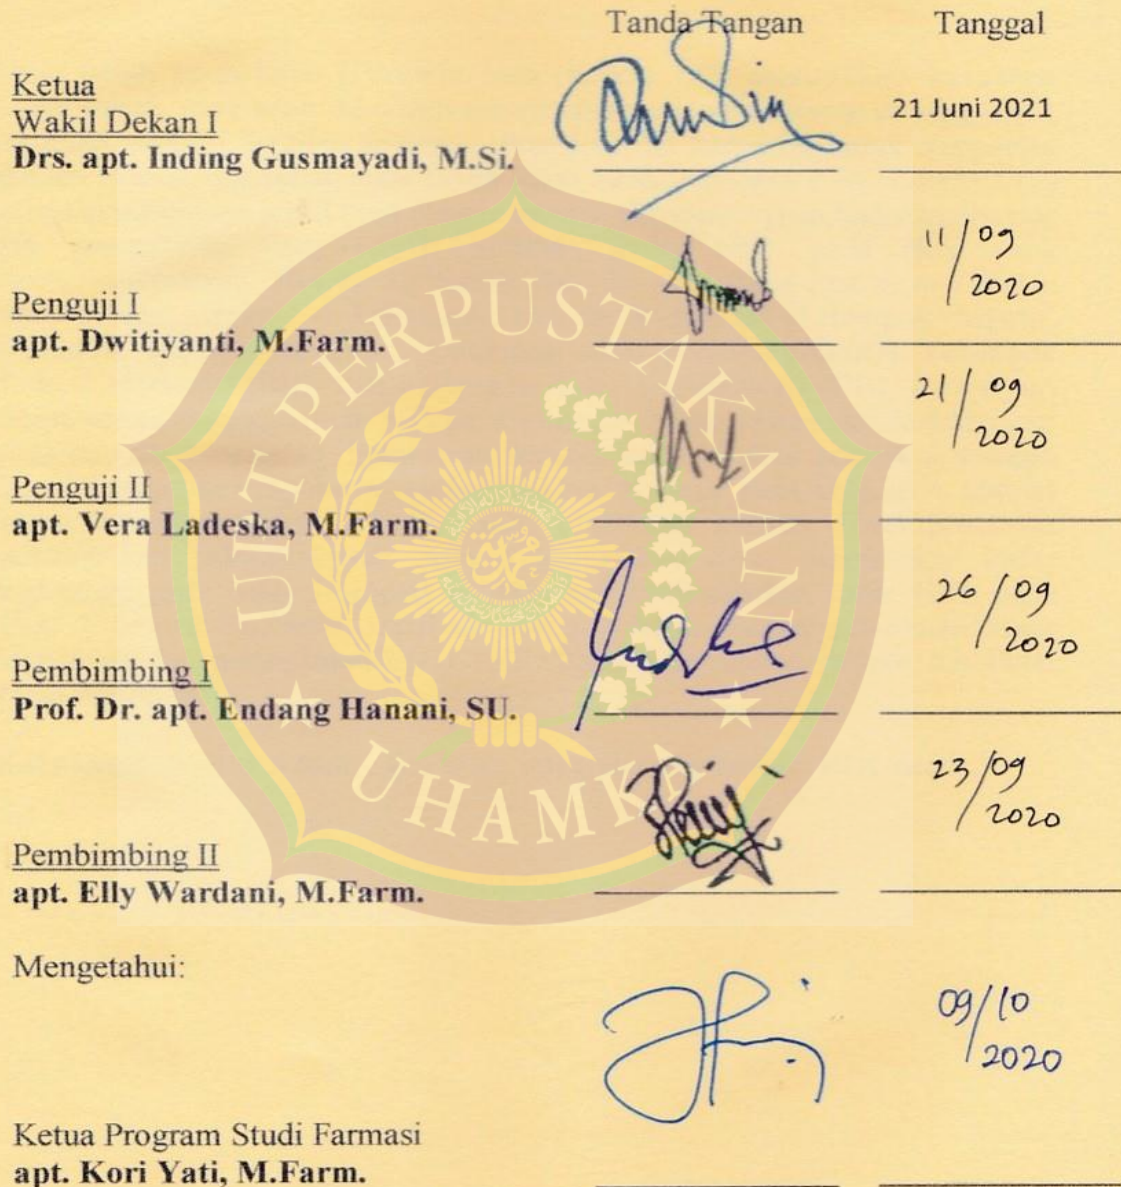 Tanda Tangan Tanggal
Ketua
Wakil Dekan I
Drs. apt. Inding Gusmayadi, M.Si.
21 Juni 2021
11/09
2020
Penguji I
apt. Dwitiyanti, M.Farm.
21/09
2020
Penguji II
apt. Vera Ladeska, M.Farm.
26/09
2020
Pembimbing I
Prof. Dr. apt. Endang Hanani, SU.
23/09
2020
Pembimbing II
apt. Elly Wardani, M.Farm.
Mengetahui:
09/10
2020
Ketua Program Studi Farmasi
apt. Kori Yati, M.Farm.
UIT PERPUSTAKAAN
UHAMKA